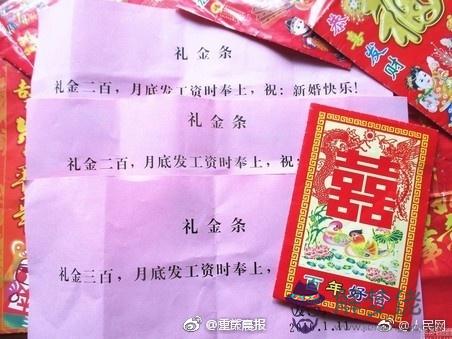 恭喜发财
礼金条
礼金二百，月底发工资时奉上，祝：新婚快乐！
礼金条
礼金二百，月底发工资时奉上，祝：
礼金条
礼金三百，月底发工资时奉上，
囍
百年好合
1.11
@重庆晨报
@人民网